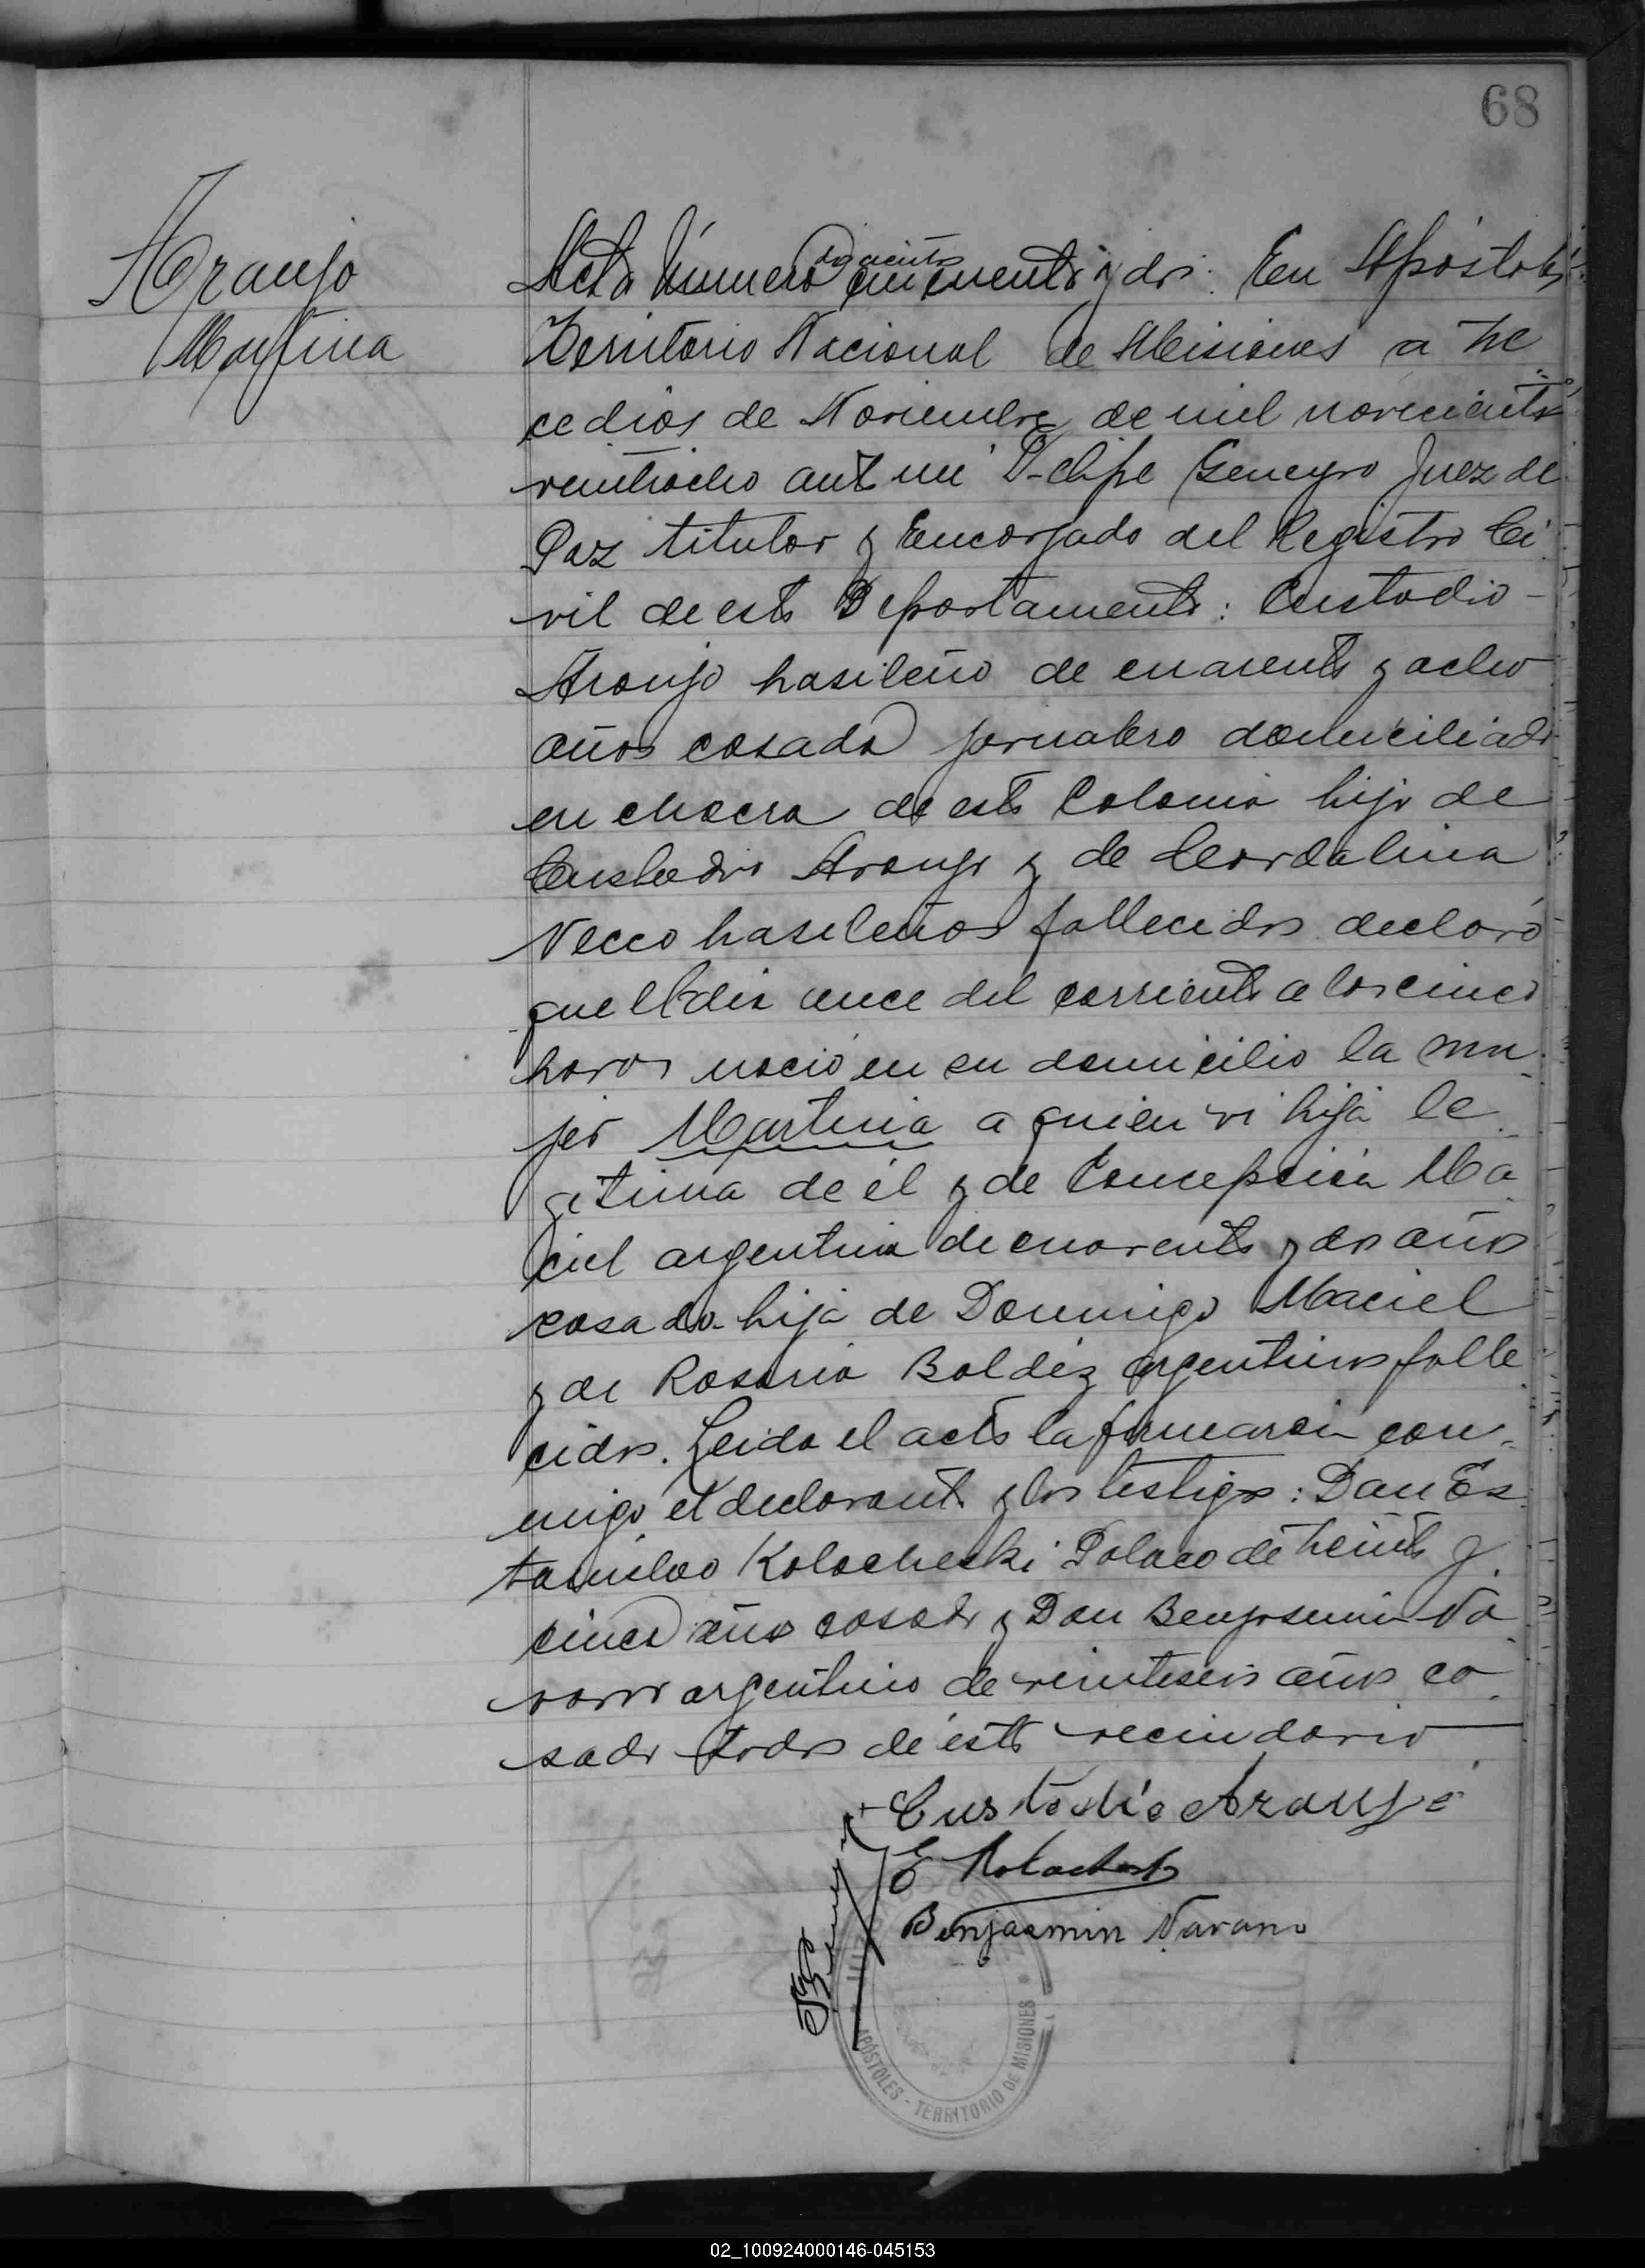 68
Araujo
Martina
Acta Número doscientos cincuenta y dos. En Apóstoles
Territorio Nacional de Misiones a tre
ce dias de Noviembre de mil novecientos
veintiocho ante mi Felipe Geneyro Juez de
Paz titular y Encargado del Registro Ci
vil de este Departamento: Custodio
Araujo brasileño de cuarenta y ocho
años casado jornalero domiciliado
en chacra de esta Colonia hijo de
Custodio Araujo y de Cordalina
Necco brasileños fallecidos declaró
que el dia once del corriente a las cinco
horas nació en su domicilio la mu
jer Martina a quien vi hija le
gitima de él y de Concepción Ma
ciel argentina de cuarenta y dos años
casada hija de Domingo Maciel
y de Rosario Baldéz argentinos falle
cidos. Leida el acta la firmaron con
migo el declarante y los testigos: Don Es
tanislao Kolocheski Polaco de treinta y
cinco años casado y Don Benjamin Na
varro argentino de veintiseis años ca
sado todos de este vecindario
Custodio Araujo
E Kolacheski
Benjaemin Navarro
APÓSTOLES - TERRITORIO DE MISIONES
02_100924000146-045153